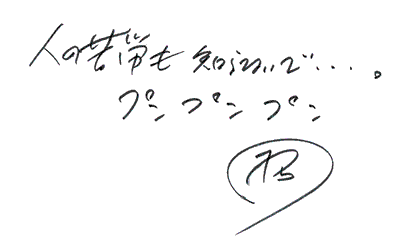 人の苦労も知らないで・・・。
プン プン プン